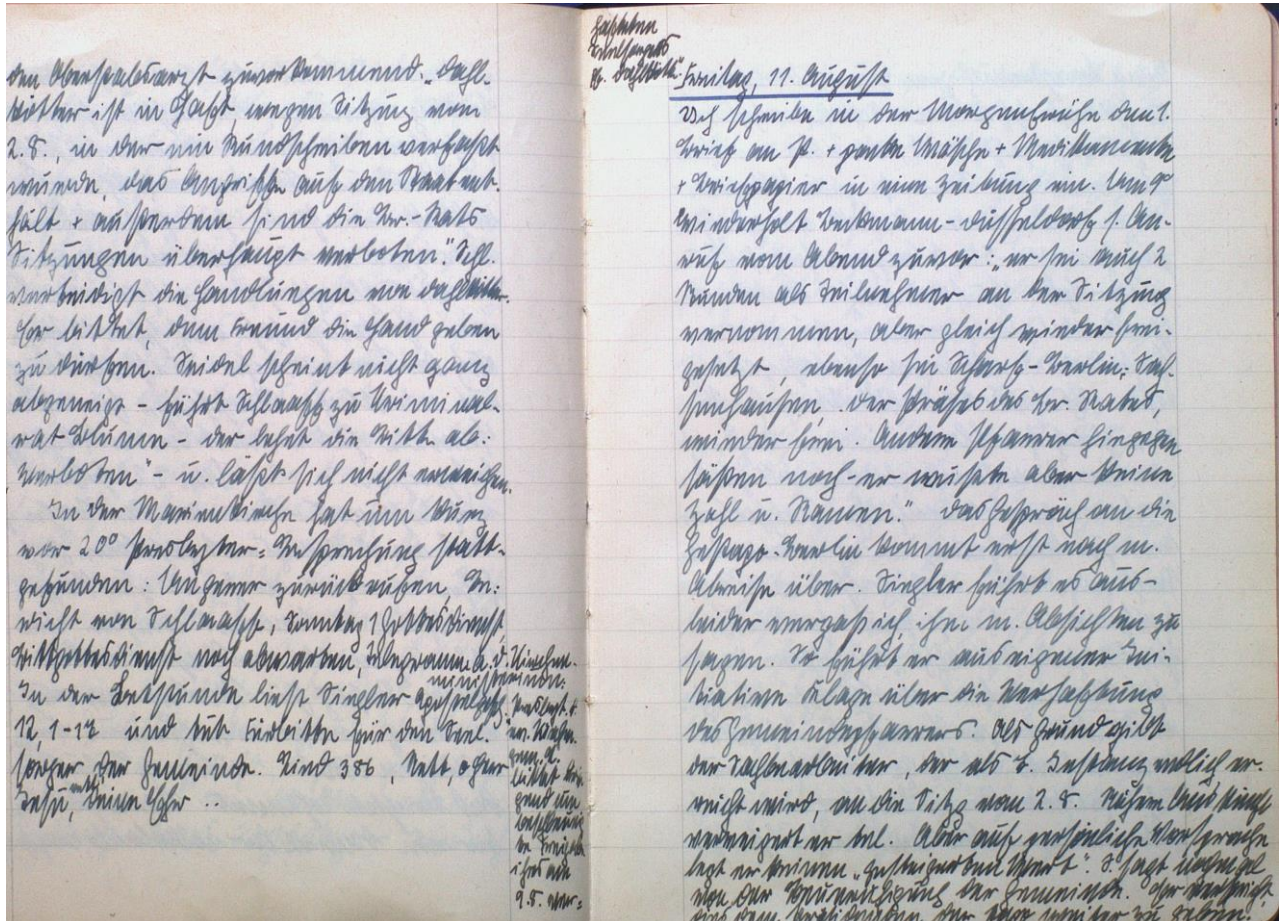 den Oberstabsarzt zuvorkommend. "Dahl-
kötter ist in Haft wegen Sitzung vom
2.8., in der ein Rundschreiben verfaßt
wurde, das Angriffe auf den Staat ent-
hält + außerdem sind die Br.-Rats
Sitzungen überhaupt verboten". Schl.
verteidigt die Handlungen von Dahlkötter.
Er bittet, dem Freund die Hand geben
zu dürfen. Seidel scheint nicht ganz
abgeneigt - führt Schlaaff zu Kriminal-
rat Blume - der lehnt die Bitte ab:
Verboten" - u. läßt sich nicht erweichen.
In der Marienkirche hat um kurz
vor 20° Presbyter-Besprechung statt-
gefunden: Ungerer zurückrufen, Be-
richt von Schlaaff, Sonntag 1 Gottesdienst,
Bittgottesdienst noch abwarten, Telegramm a. d. Kirchen-
ministerium:
In der Betstunde liest Siegler Apostelgesch.
12, 1-17 und tut Fürbitte für den Seel-
sorger der Gemeinde. Lied 386, Rett o Herr
Jesu, rett deine Ehr ..
Presbyt. d.
ev.
bittet drin-
gend um
ihres am
9.8. ver-
Freitag, 11. August
Ich schreibe in der Morgenfrühe den 1.
Brief an P. + packe Wäsche + Medikamente
+ Briefpapier in eine Zeitung ein. Um 9°
wiederholt Beckmann-Düsseldorf s. An-
ruf vom Abend zuvor: "er sei auch 2
Stunden als Teilnehmer an der Sitzung
vernommen, aber gleich wieder frei-
gesetzt, ebenso sei Scharf-Berlin-Sach-
senhausen, der Präses des Br. Rates,
wieder frei. Andere Pfarrer hingegen
säßen noch - er wußte aber keine
Zahl u. Namen." Das Gespräch an die
Gestapo-Berlin kommt erst nach m.
Abreise über. Siegler führt es aus -
leider vergaß ich, ihm m. Absichten zu
sagen. So führt er aus eigener Ini-
tiative Klage über die Verhaftung
des Gemeindepfarrers. Als Grund gibt
der Sachbearbeiter, der als 6. Instanz endlich er-
reicht wird, an die Sitzg vom 2.8. Nähere Auskunft
verweigert er tel. Aber auf persönliche Vorsprache
legt er keinen "gesteigerten Wert". S. sagt
von der Beunruhigung der Gemeinde. Er
weiter zu geben.